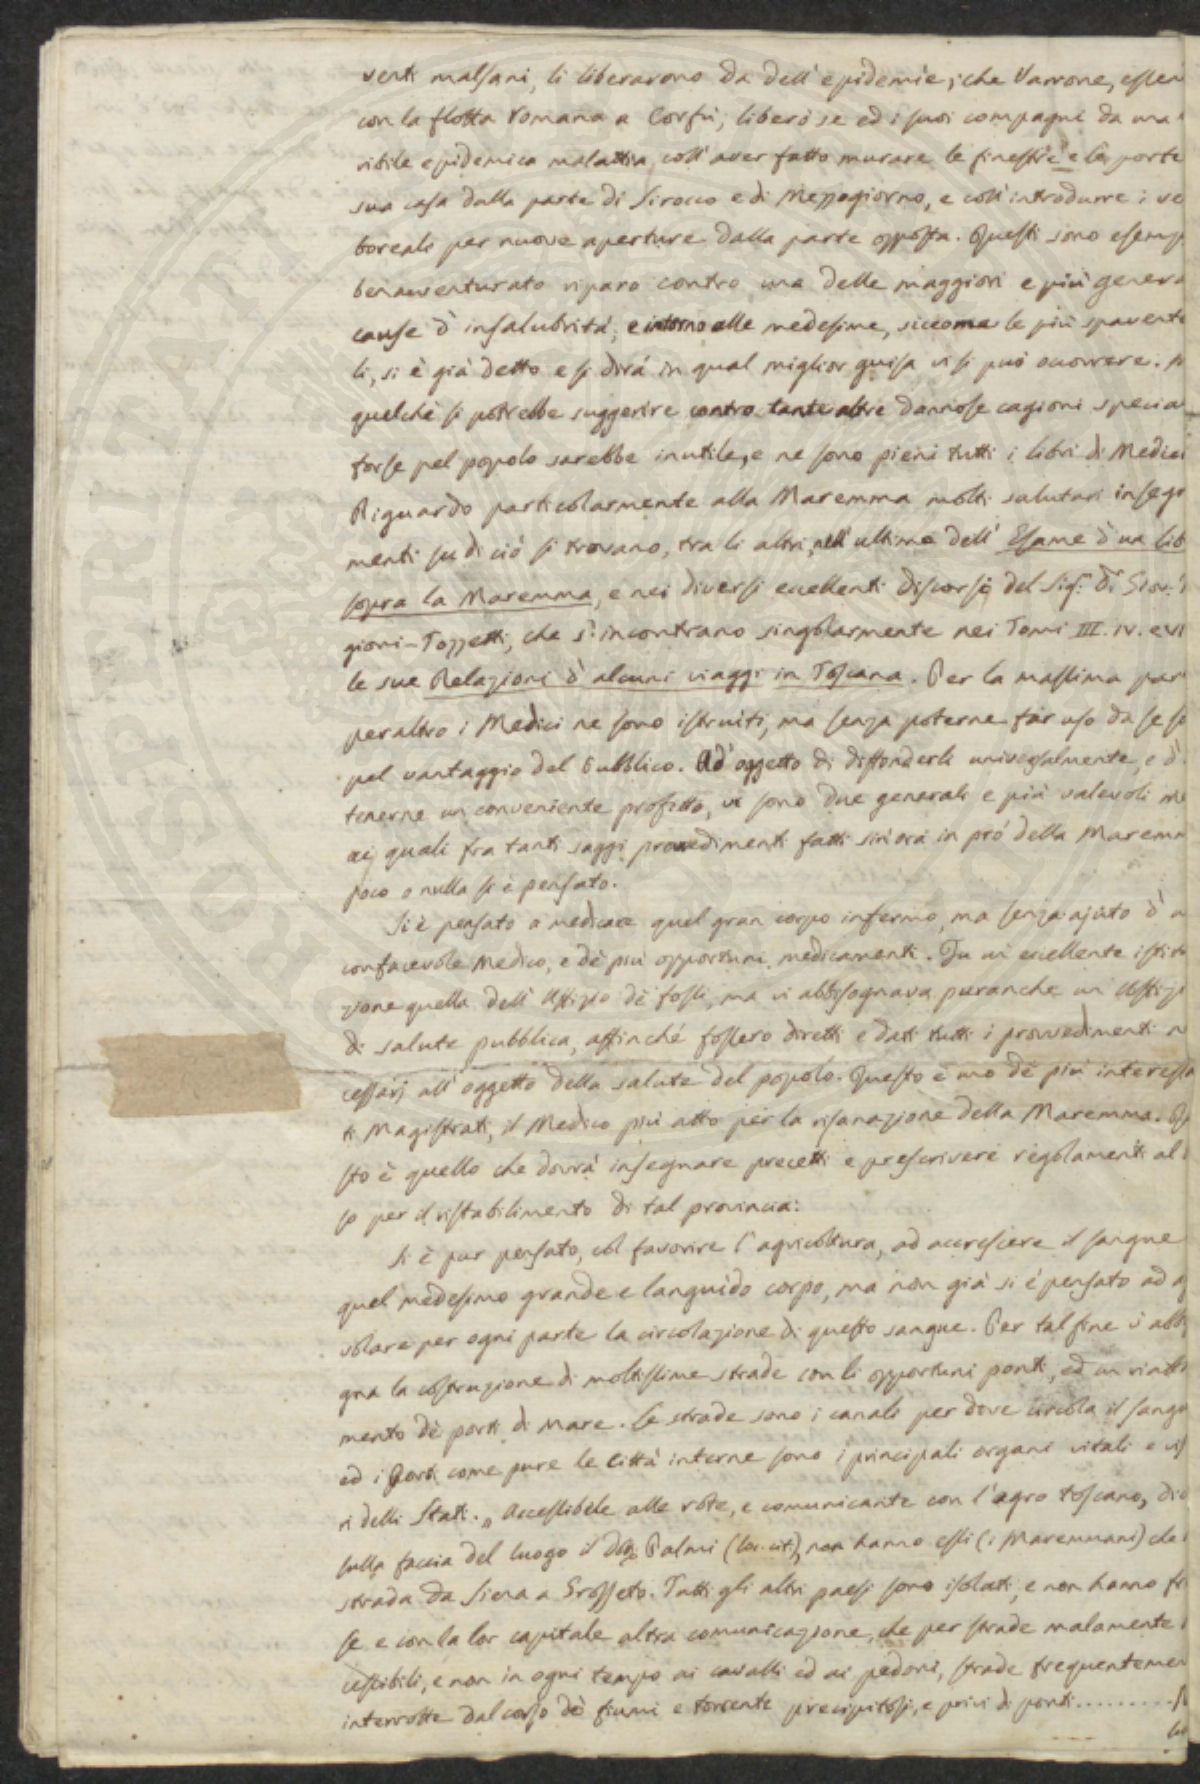 venti malsani, li liberarono da dell'epidemie; che Varrone, essen
con la flotta romana a Corfù, liberò se ed i suoi compagni da una
ribile epidemica malattia coll'aver fatto murare le finestre e le porte
sua casa dalla parte di Sirocco e di Mezzogiorno, e coll'introdurre i ve
boreali per nuove aperture dalla parte opposta. Questi sono esemp
benavventurato riparo contro una delle maggiori e più genera
cause d'insalubrità, e intorno alle medesime, siccome le più spavente
li, si è già detto e si dirà in qual miglior guisa vi si può occorrere.
quelchè si potrebbe suggerire contro tante altre dannose cagioni specia
forse pel popolo sarebbe inutile, e ne sono pieni tutti i libri di Medici
Riguardo particolarmente alla Maremma molti salutari insegn
menti su di ciò si trovano, tra li altri, nell'ultimo dell'Esame d'un lib
sopra la Maremma, e nei diversi eccellenti discorsi del Sig.r D.r Giov.
gioni-Tozzetti, che s'incontrano singolarmente nei Tomi III. IV. e VI
le sue Relazioni d'alcuni viaggi in Toscana. Per la massima par
peraltro i Medici ne sono istruiti, ma senza poterne far uso da se so
pel vantaggio del Pubblico. Ad oggetto di diffonderli universalmente, e d'
tenerne un conveniente profitto, vi sono due generali e più valevoli me
ai quali fra tanti saggi provvedimenti fatti sin'ora in prò della Maremm
poco o nulla si è pensato.
Si è pensato a medicare quel gran corpo infermo, ma senza ajuto d'u
confacevole Medico, e de' più opportuni medicamenti. Fu un'eccellente istitu
zione quella dell'Uffizio de' fossi, ma vi abbisognava puranche un Uffizi
di salute pubblica, affinchè fossero diretti e dati tutti i provvedimenti n
cessarj all'oggetto della salute del popolo. Questo è uno de' più interessa
ti Magistrati, il Medico più atto per la risanazione della Maremma. Q
sto è quello che dovrà insegnare precetti e prescrivere regolamenti al
so per il ristabilimento di tal provincia.
Si è pur pensato, col favorire l'agricoltura, ad accrescere il sangue
quel medesimo grande e languido corpo, ma non già si è pensato ad a
volare per ogni parte la circolazione di questo sangue. Per tal fine vi abb
gna la costruzione di moltissime strade con li opportuni ponti, ed un
mento de' porti di mare. Le strade sono i canali per dove circola il sangu
ed i Porti come pure le Città interne sono i principali organi vitali e vis
ri delli Stati. „ Accessibile alle rote, e comunicante con l'agro toscano, dic
sulla faccia del luogo il Palmi (loc. cit.), non hanno essi (i Maremmani) che
strada da Siena a Grosseto. Tutti gli altri paesi sono isolati, e non hanno fr
se e con la lor capitale altra comunicazione, che per strade malamente
cessibili, e non in ogni tempo ai cavalli ed ai pedoni, strade frequentemen
interrotte dal corso de' fiumi e torrente precipitosi, e privi di ponti.........